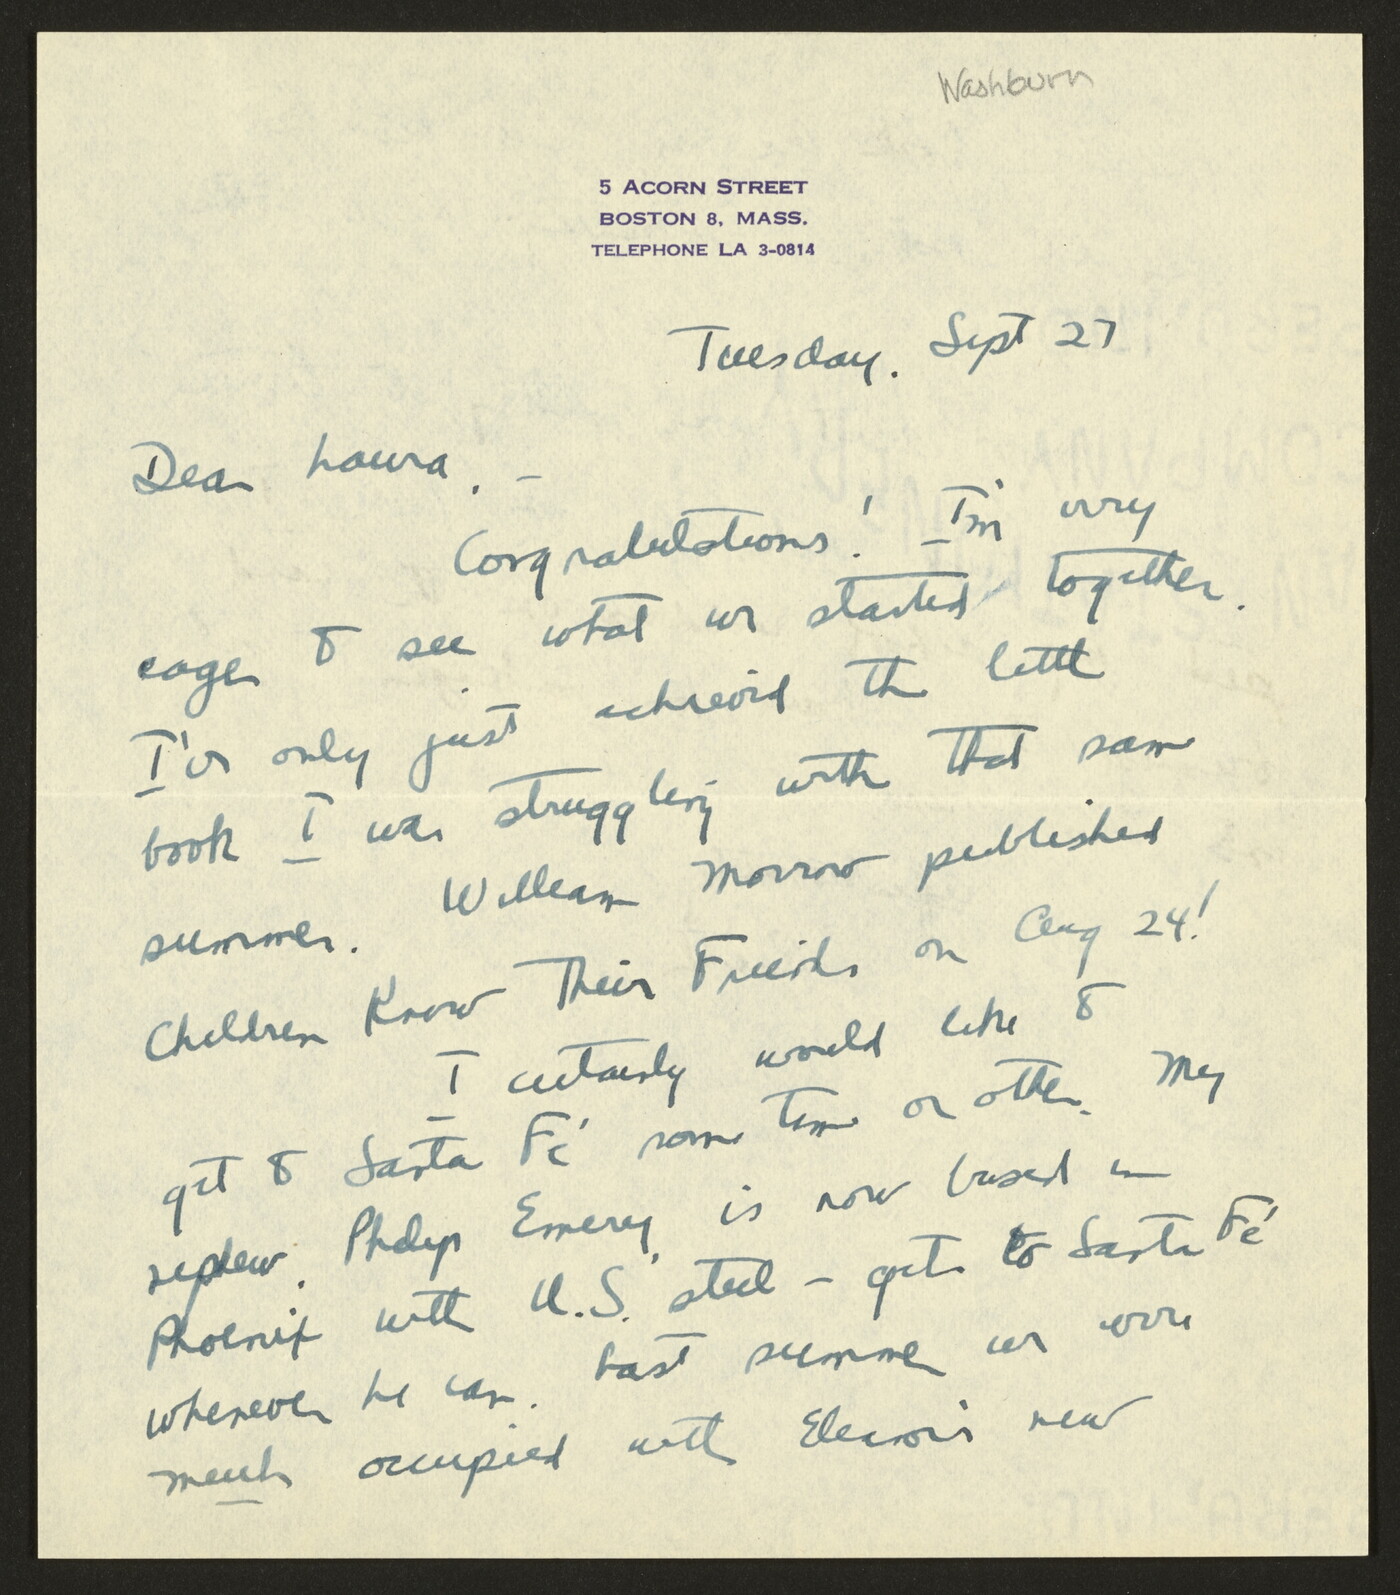 Washburn
5 ACORN STREET
BOSTON 8, MASS.
TELEPHONE LA 3-0814
Tuesday. Sept 27
Dear Laura, -
Congratulations! I'm very
eager to see what we started together.
I've only just achieved the little
book I was struggling with that same
summer. William Morrow published
Children Know Their Friends on Aug 24!
I certainly would like to
get to Santa Fé some time or other. My
nephew, Philip Emery, is now based in
Phoenix with U.S. Steel - gets to Santa Fé
whenever he can. Last summer we were
much occupied with Eleanor's new